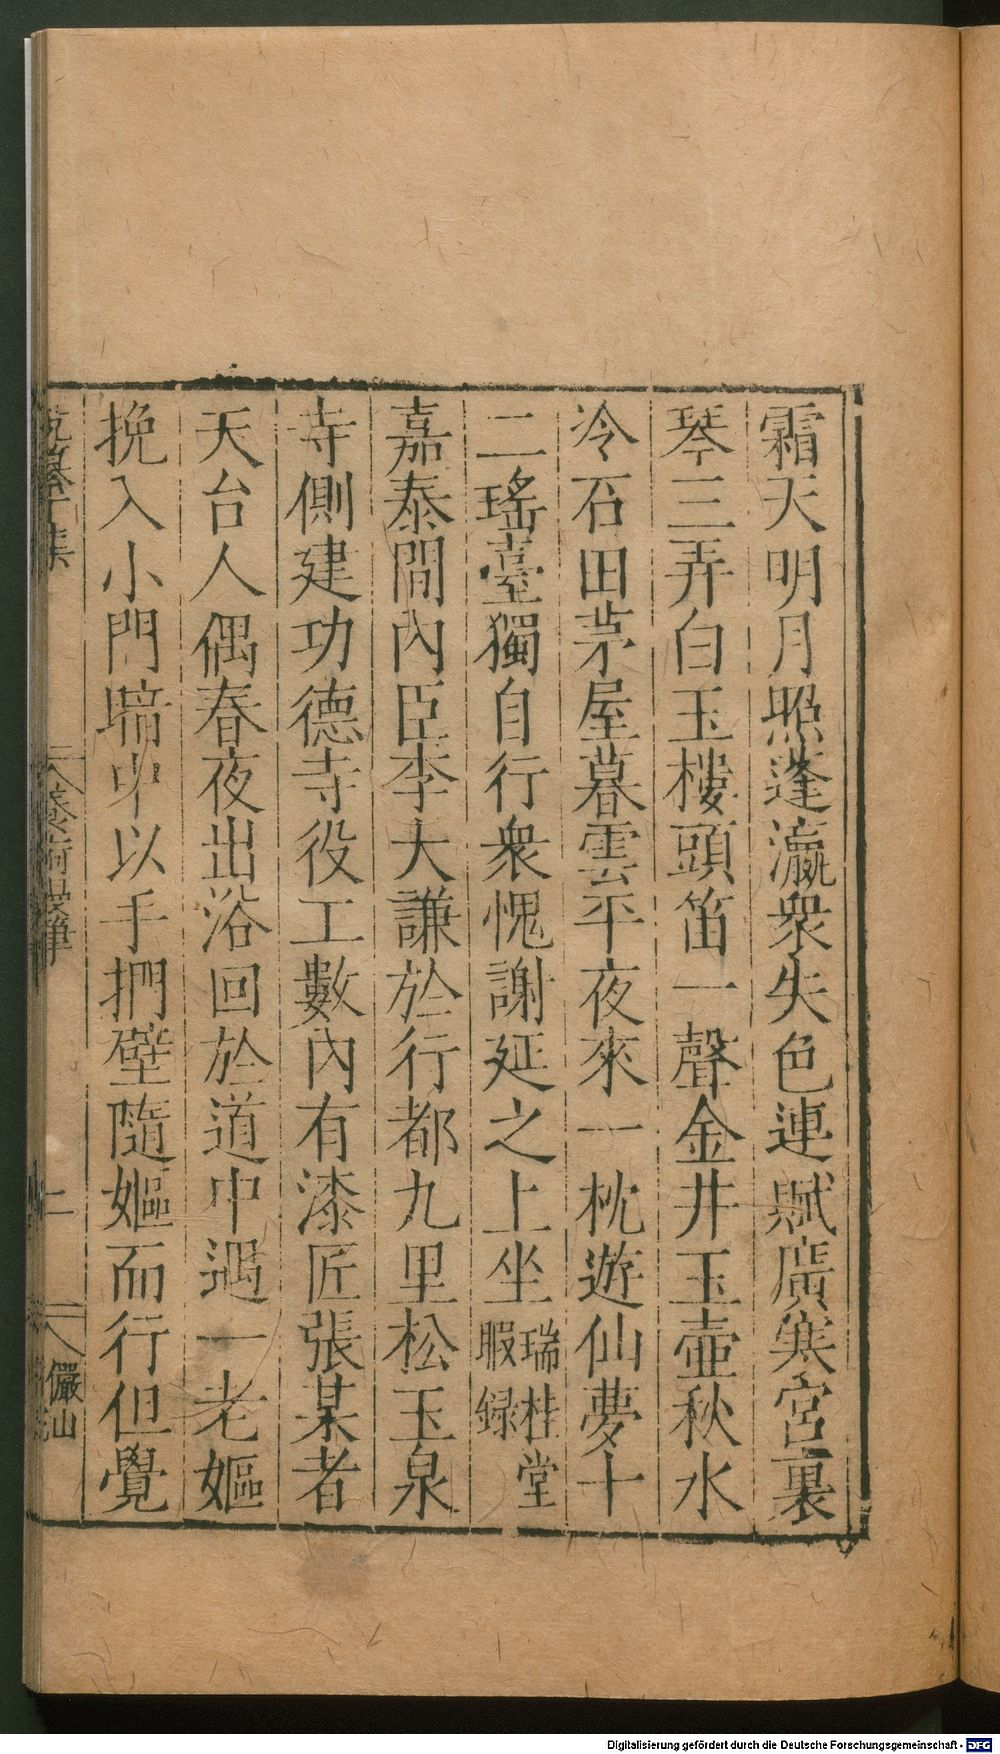 霜天明月照蓬瀛衆失色連賦廣寒宮裏
琴三弄白玉樓頭笛一聲金井玉壺秋水
冷石田茅屋暮雲平夜來一枕遊仙夢十
二瑤臺獨自行衆愧謝延之上坐瑞桂堂
暇録
嘉泰間內臣李大謙於行都九里松玉泉
寺側建功德寺役工數內有漆匠張某者
天台人偶春夜出浴回於道中遇一老嫗
挽入小門暗中以手捫壁隨嫗而行但覺
儼山
Digitalisierung gefördert durch die Deutsche Forschungsgemeinschaft - DFG